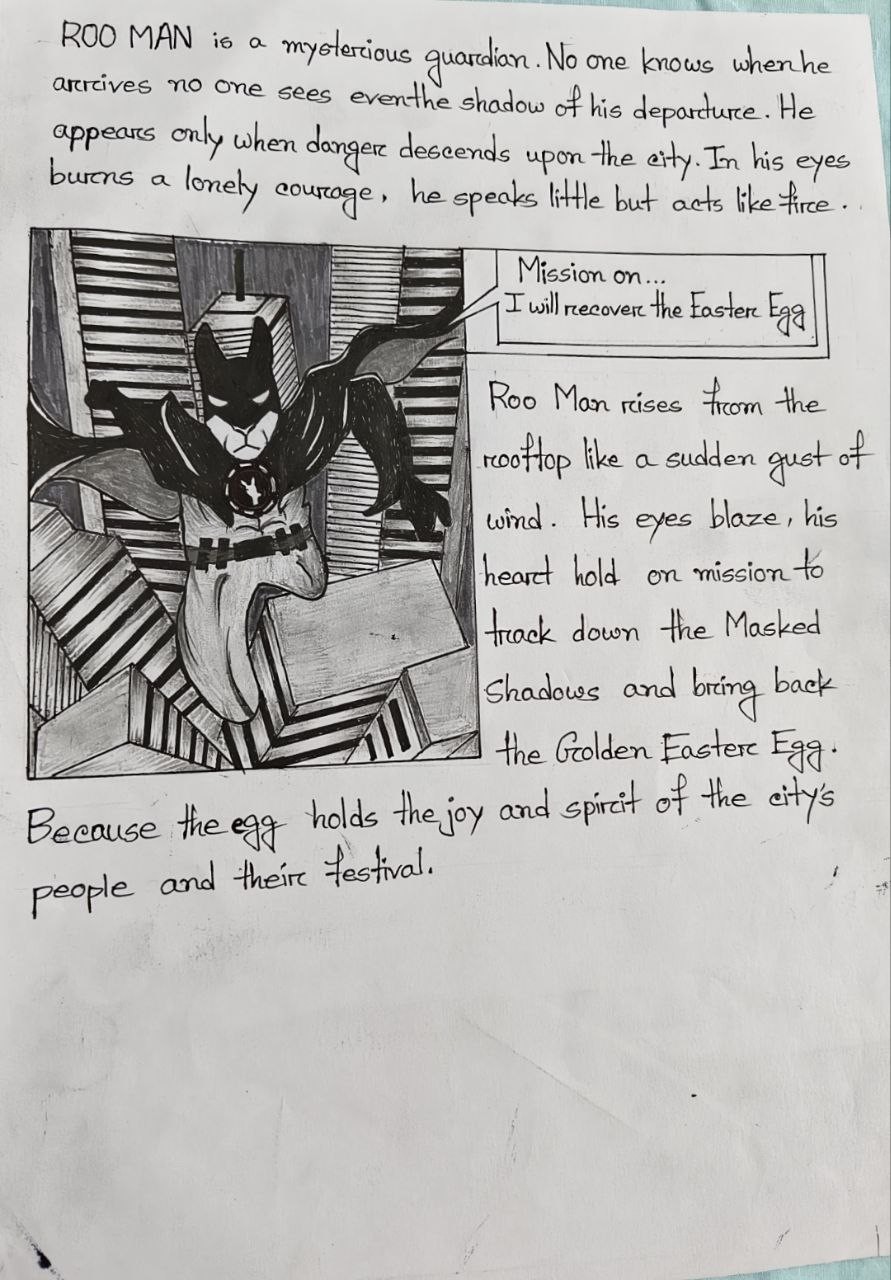 ROO MAN is a mysterious guardian. No one knows when he
arrives no one sees even the shadow of his departure. He
appears only when danger descends upon the city. In his eyes
burns a lonely courage, he speaks little but acts like fire.
Mission on...
I will recover the Easter Egg
Roo Man rises from the
rooftop like a sudden gust of
wind. His eyes blaze, his
heart hold on mission to
track down the Masked
Shadows and bring back
the Golden Easter Egg.
Because the egg holds the joy and spirit of the city's
people and their festival.